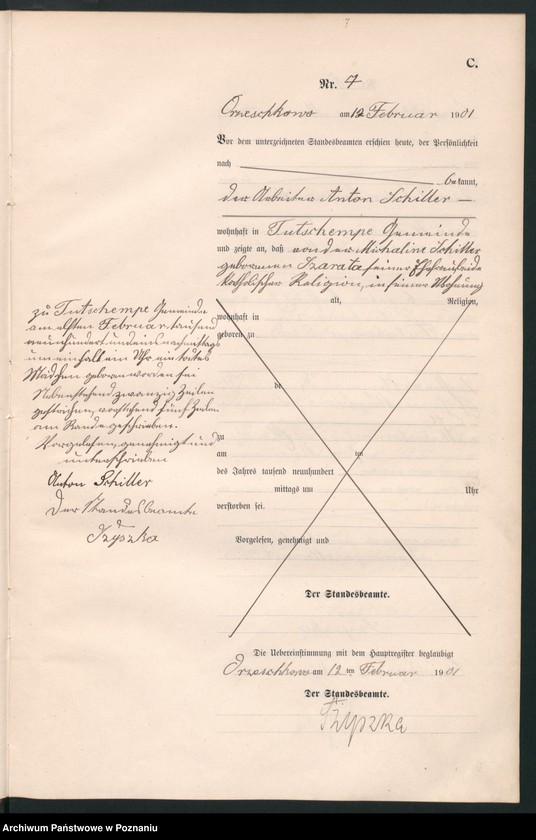 7
C.
Nr. 4
Orzeschkowo am 12 Februar 1901
Vor dem unterzeichneten Standesbeamten erschien heute, der Persönlichkeit
nach
be kannt,
der Arbeiter Anton Schiller
wohnhaft in Tutschempe Gemeinde
und zeigte an, daß von der Michaline Schiller
geborenen Szarata seiner Ehefrau beide
katholischer Religion, in seiner Wohnung
alt, Religion,
zu Tutschempe Gemeinde
am elften Februar tausend
neunhundert und eins nachmittags
um einhalb ein Uhr ein todtes
Mädchen geboren worden sei
Nebenstehend zwanzig Zeilen
gestrichen, vorstehend fünf Zeilen
am Rande geschrieben.
Vorgelesen, genehmigt und
unterschrieben
Anton Schiller
Der Standesbeamte
Tzyszka
wohnhaft in
geboren zu
de
zu
am ten
des Jahres tausend neunhundert
mittags um Uhr
verstorben sei.
Vorgelesen, genehmigt und
Der Standesbeamte.
Die Uebereinstimmung mit dem Hauptregister beglaubigt
Orzeschkowo am 12 ten Februar 1901
Der Standesbeamte.
Tzyszka
Archiwum Państwowe w Poznaniu